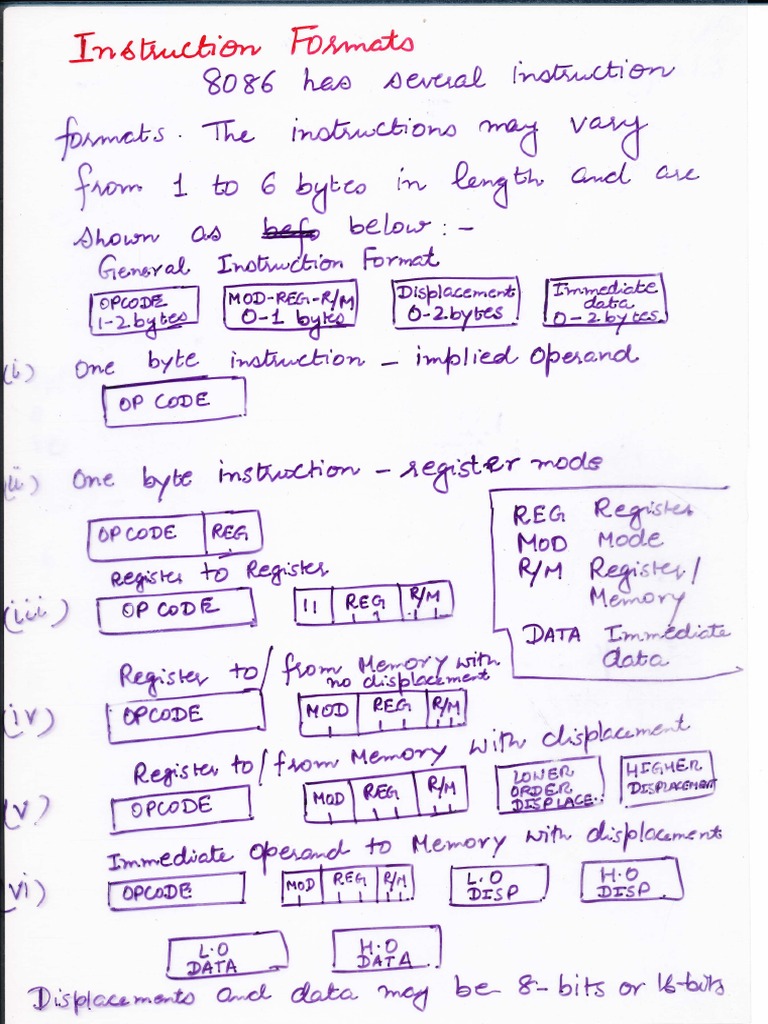 Instruction Formats
8086 has several instruction
formats. The instructions may vary
from 1 to 6 bytes in length and are
shown as below:-
General Instruction Format
OPCODE 1-2 bytes MOD-REG-R/M 0-1 bytes Displacement 0-2 bytes Immediate data 0-2 bytes
(i) One byte instruction - implied operand
OP CODE
(ii) One byte instruction - register mode
OPCODE REG
REG Register
MOD Mode
R/M Register/
Memory
DATA Immediate
data
Register to Register
(iii) OP CODE 11 REG R/M
Register to/from Memory with
no displacement
(iv) OPCODE MOD REG R/M
Register to/from Memory with displacement
(v) OPCODE MOD REG R/M LOWER ORDER DISPLACE.. HIGHER DISPLACEMENT
Immediate operand to Memory with displacement
(vi) OPCODE MOD REG R/M L.O DISP H.O DISP
L.O DATA H.O DATA
Displacements and data may be 8-bits or 16-bits